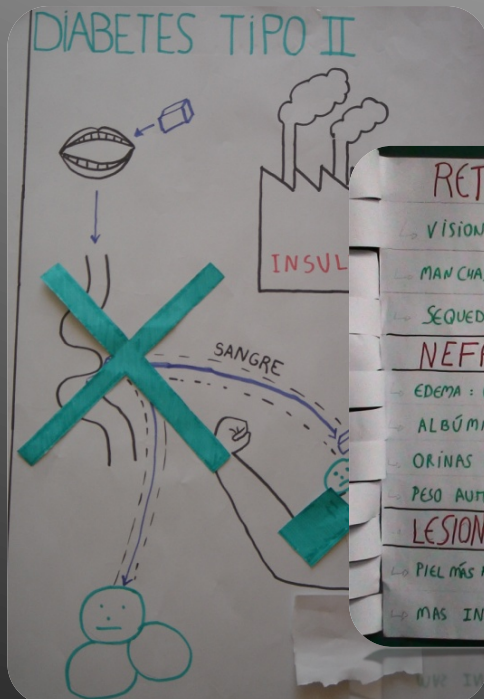 DiABETES TiPO II
INSUL
SANGRE
RET
VISION
MANCHA
SEQUED
NEF
EDEMA :
ALBÚM
ORINAS
PESO AU
LESION
PIEL MÁS
MAS IN